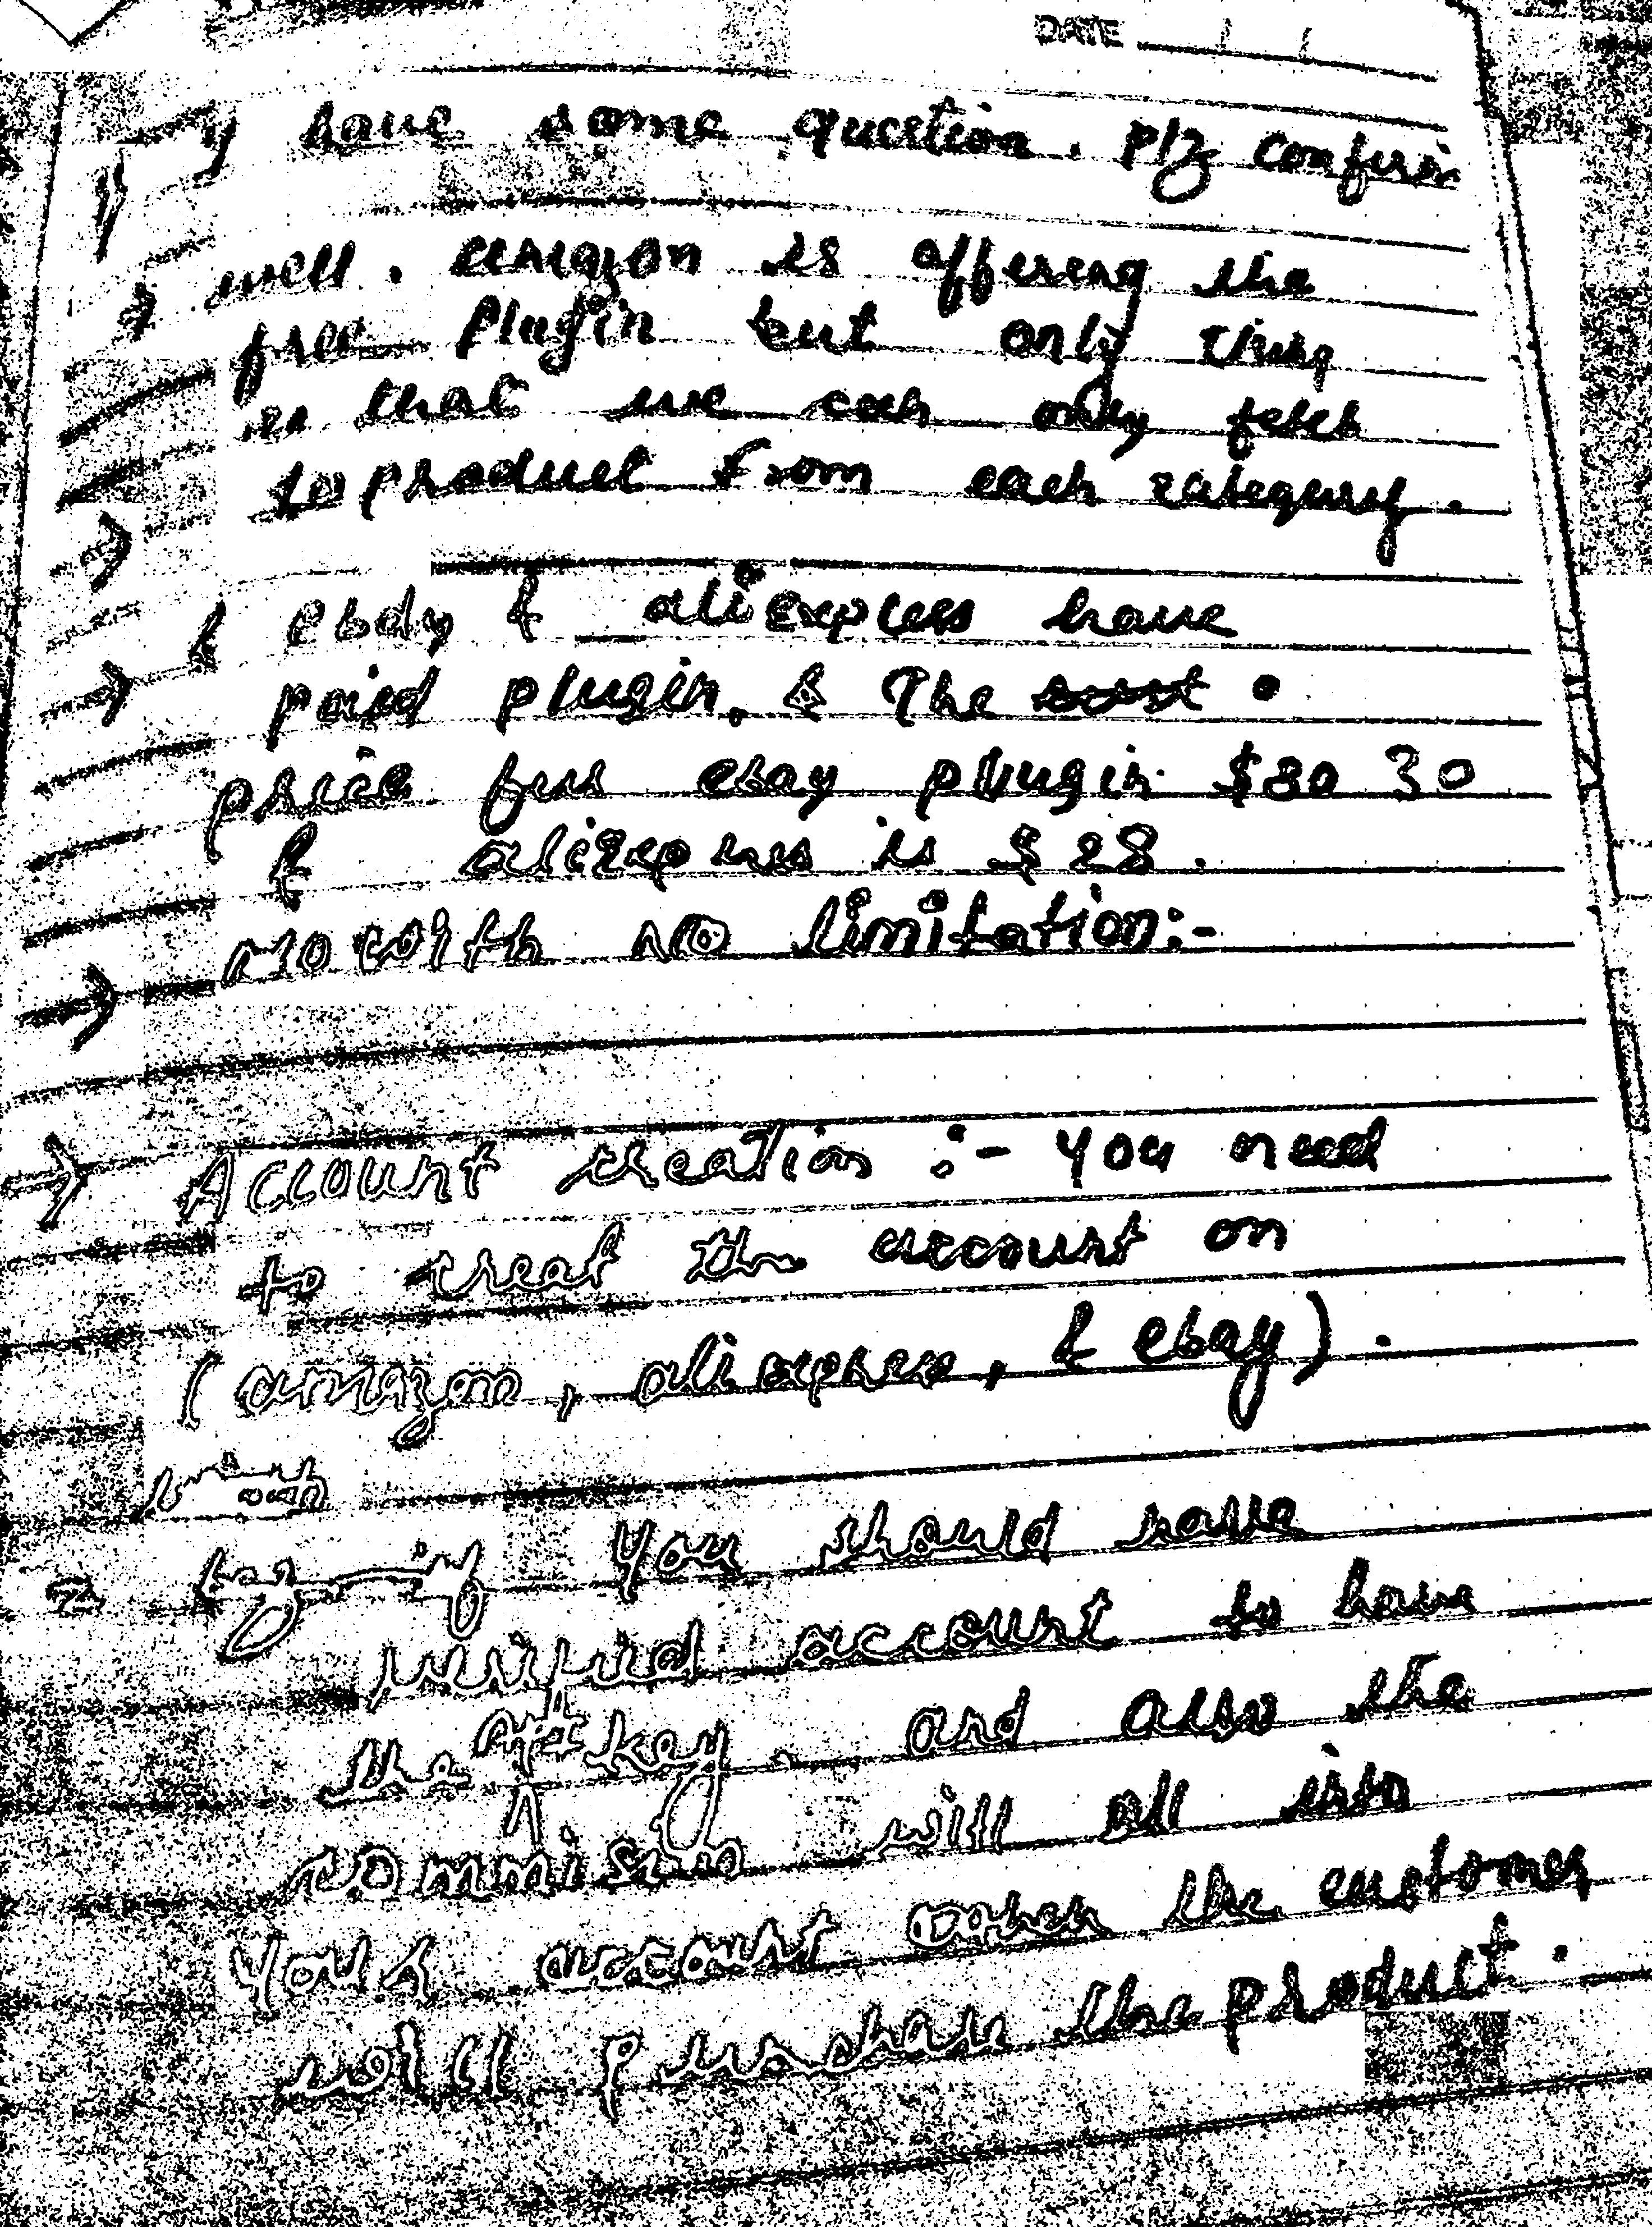 DATE
I have some question. Plz confirm
well. amazon is offering the
free Plugin but only thing
is that we can only fetch
10 product from each category.
& ebay & aliexpress have
paid plugin. & The
price for ebay plugin $30
& aliexpress is $28.
with no limitation:-
Account creation :- You need
to creat the account on
(amazon, aliexpress, & ebay).
You should have
verified account to have
the API key. and also the
commision will all into
your account when the customer
will purchase the product.